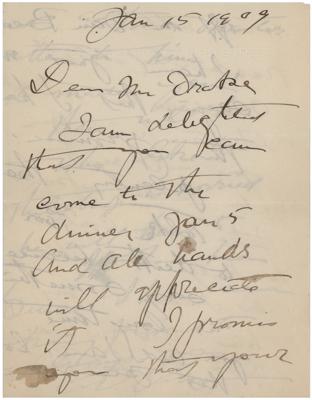 Jan 15 1909
Dear Mr Drake
I am delighted
that you can
come to the
dinner Jan 5
And all hands
will appreciate
it I promis
you that your